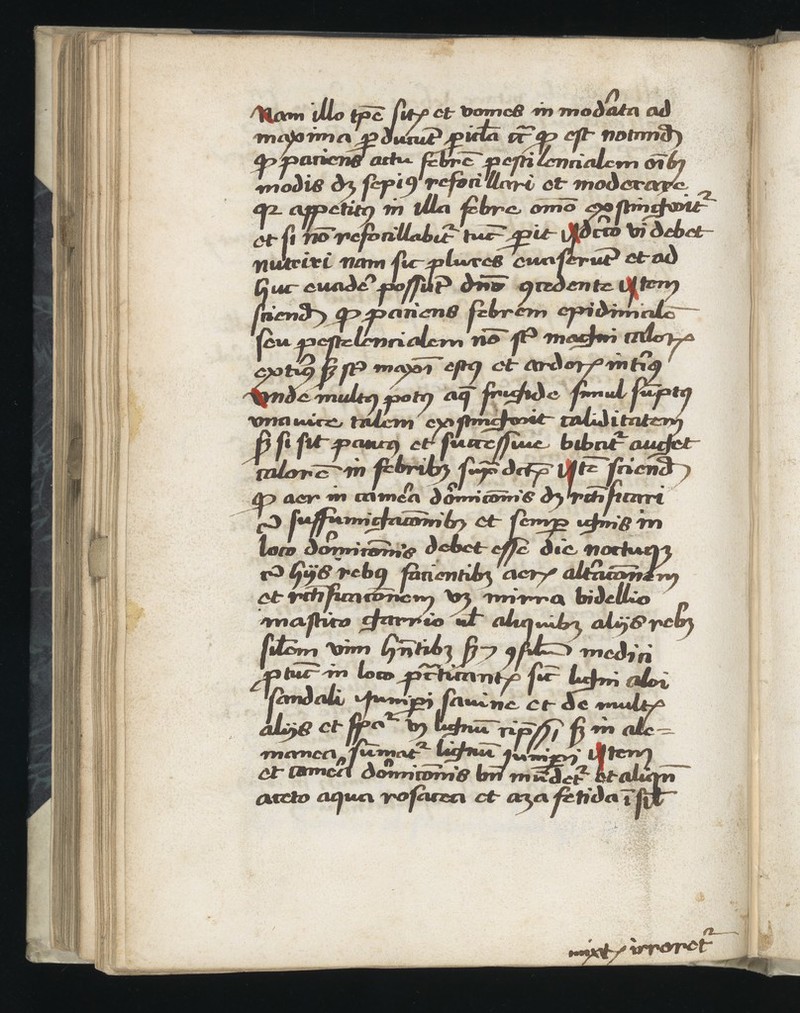 Nam illo tp̄e sitꝭ et vomes in modᵃta ad
maxima ꝑducūt ꝑicla ꝛc̄ ꝙ est notandꝫ
ꝙ paciens actu febrē pestilencialem oībꝫ
modis dꝫ sepiꝰ refocillari et moderare
qꝛ appetitꝰ in illa febre om̄o exstingwitᷣ
et si nō refocillabitᷣ tūc ꝑit Itē dc̄to vl debet
nutriri nam sic plures euaserūt et ad
huc euadeᷣ possūt dn̄o ꝯcedente Item
sciendꝫ ꝙ paciens febrem epidimialē
seu pestelencialem nō st̄ magni calorꝭ
extriꝰ sꝫ st̄ maxī estꝰ et ardorꝭ intꝰ
Vnde multꝰ potꝰ aq̄ frigide simul sūptꝰ
vna vice talem exstingwit caliditatem
sꝫ si sit paucꝰ et successiue bibatᷣ auget
calorē in febribꝫ supᷣdc̄tꝭ Itē sciendꝫ
ꝙ aer in cameᷣa dormicōnis dꝫ rc̄tificari
cū suffumigacōnibꝫ et semꝑ ignis in
loco dormicōnis debet esse die noctuqꝫ
cū hijs rebꝰ facientibꝫ aerꝭ altᷣacōnem
et rc̄tificacōnem vꝫ mirra bidellio
mastico garrio vl̄ aliquibꝫ alijs rebꝫ
silēm vim hn̄tibꝫ sꝫ ꝯsilium medici
ꝑtūc in loco pᷣcticantꝭ sic̄ ligni aloi
sandali Juniꝑi sauine et de multꝭ
alijs et spāᷣ vꝫ lignū ciprssī sꝫ in ale=
manea sumatᷣ lignū Juniꝑi Item
et cameᷣa dormicōnis bn̄ mūdetᷣ et aliqn̄
aceto aqua rosacea et aza fetida ī sil̄
mixtꝭ irroretᷣ